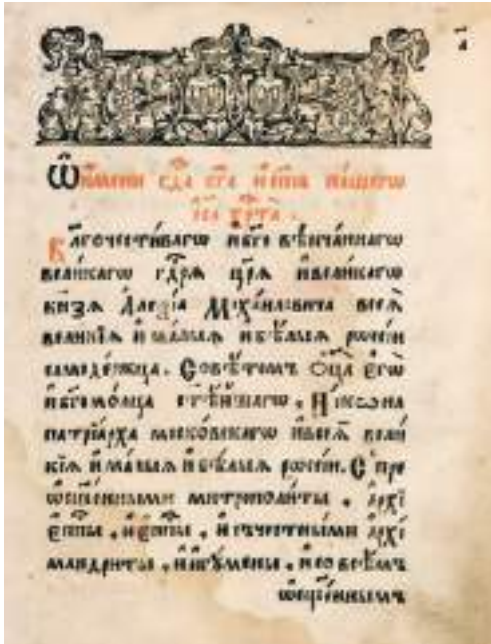 Ѡ҆ имени гдⷭ҇а бг҃а и҆ сп҃са на́шегѡ
і҆и҃са хрⷭ҇та̀.
Благочести́вагѡ и҆ бг҃овѣнча́ннагѡ
вели́кагѡ гдⷭ҇рѧ цр҃ѧ̀ и҆ вели́кагѡ
кнѧ́зѧ А҆леѯі́а Миха́иловича всеѧ̀
вели́кїѧ и҆ ма́лыѧ и҆ бѣ́лыѧ рѡсі́и
самоде́ржца. Совѣ́томъ Ѻ҆ц҃а̀ є҆гѡ̀
и҆ бг҃омо́лца ст҃ѣ́йшагѡ. Ни́кѡна
патрїа́рха моско́вскагѡ и҆ всеѧ̀ вели́
кїѧ и҆ ма́лыѧ и҆ бѣ́лыѧ рѡсі́и. С̾ пре
ѡ҆сщ҃е́нными митрополи́ты. а҆рхї
є҆пⷭ҇пы. и҆ є҆пⷭ҇пы. и҆ съ честны́ми а҆рхї
мандри́ты. и҆ и҆гꙋ́мены. и҆ со всѣ́мъ
ѡ҆сщ҃е́ннымъ